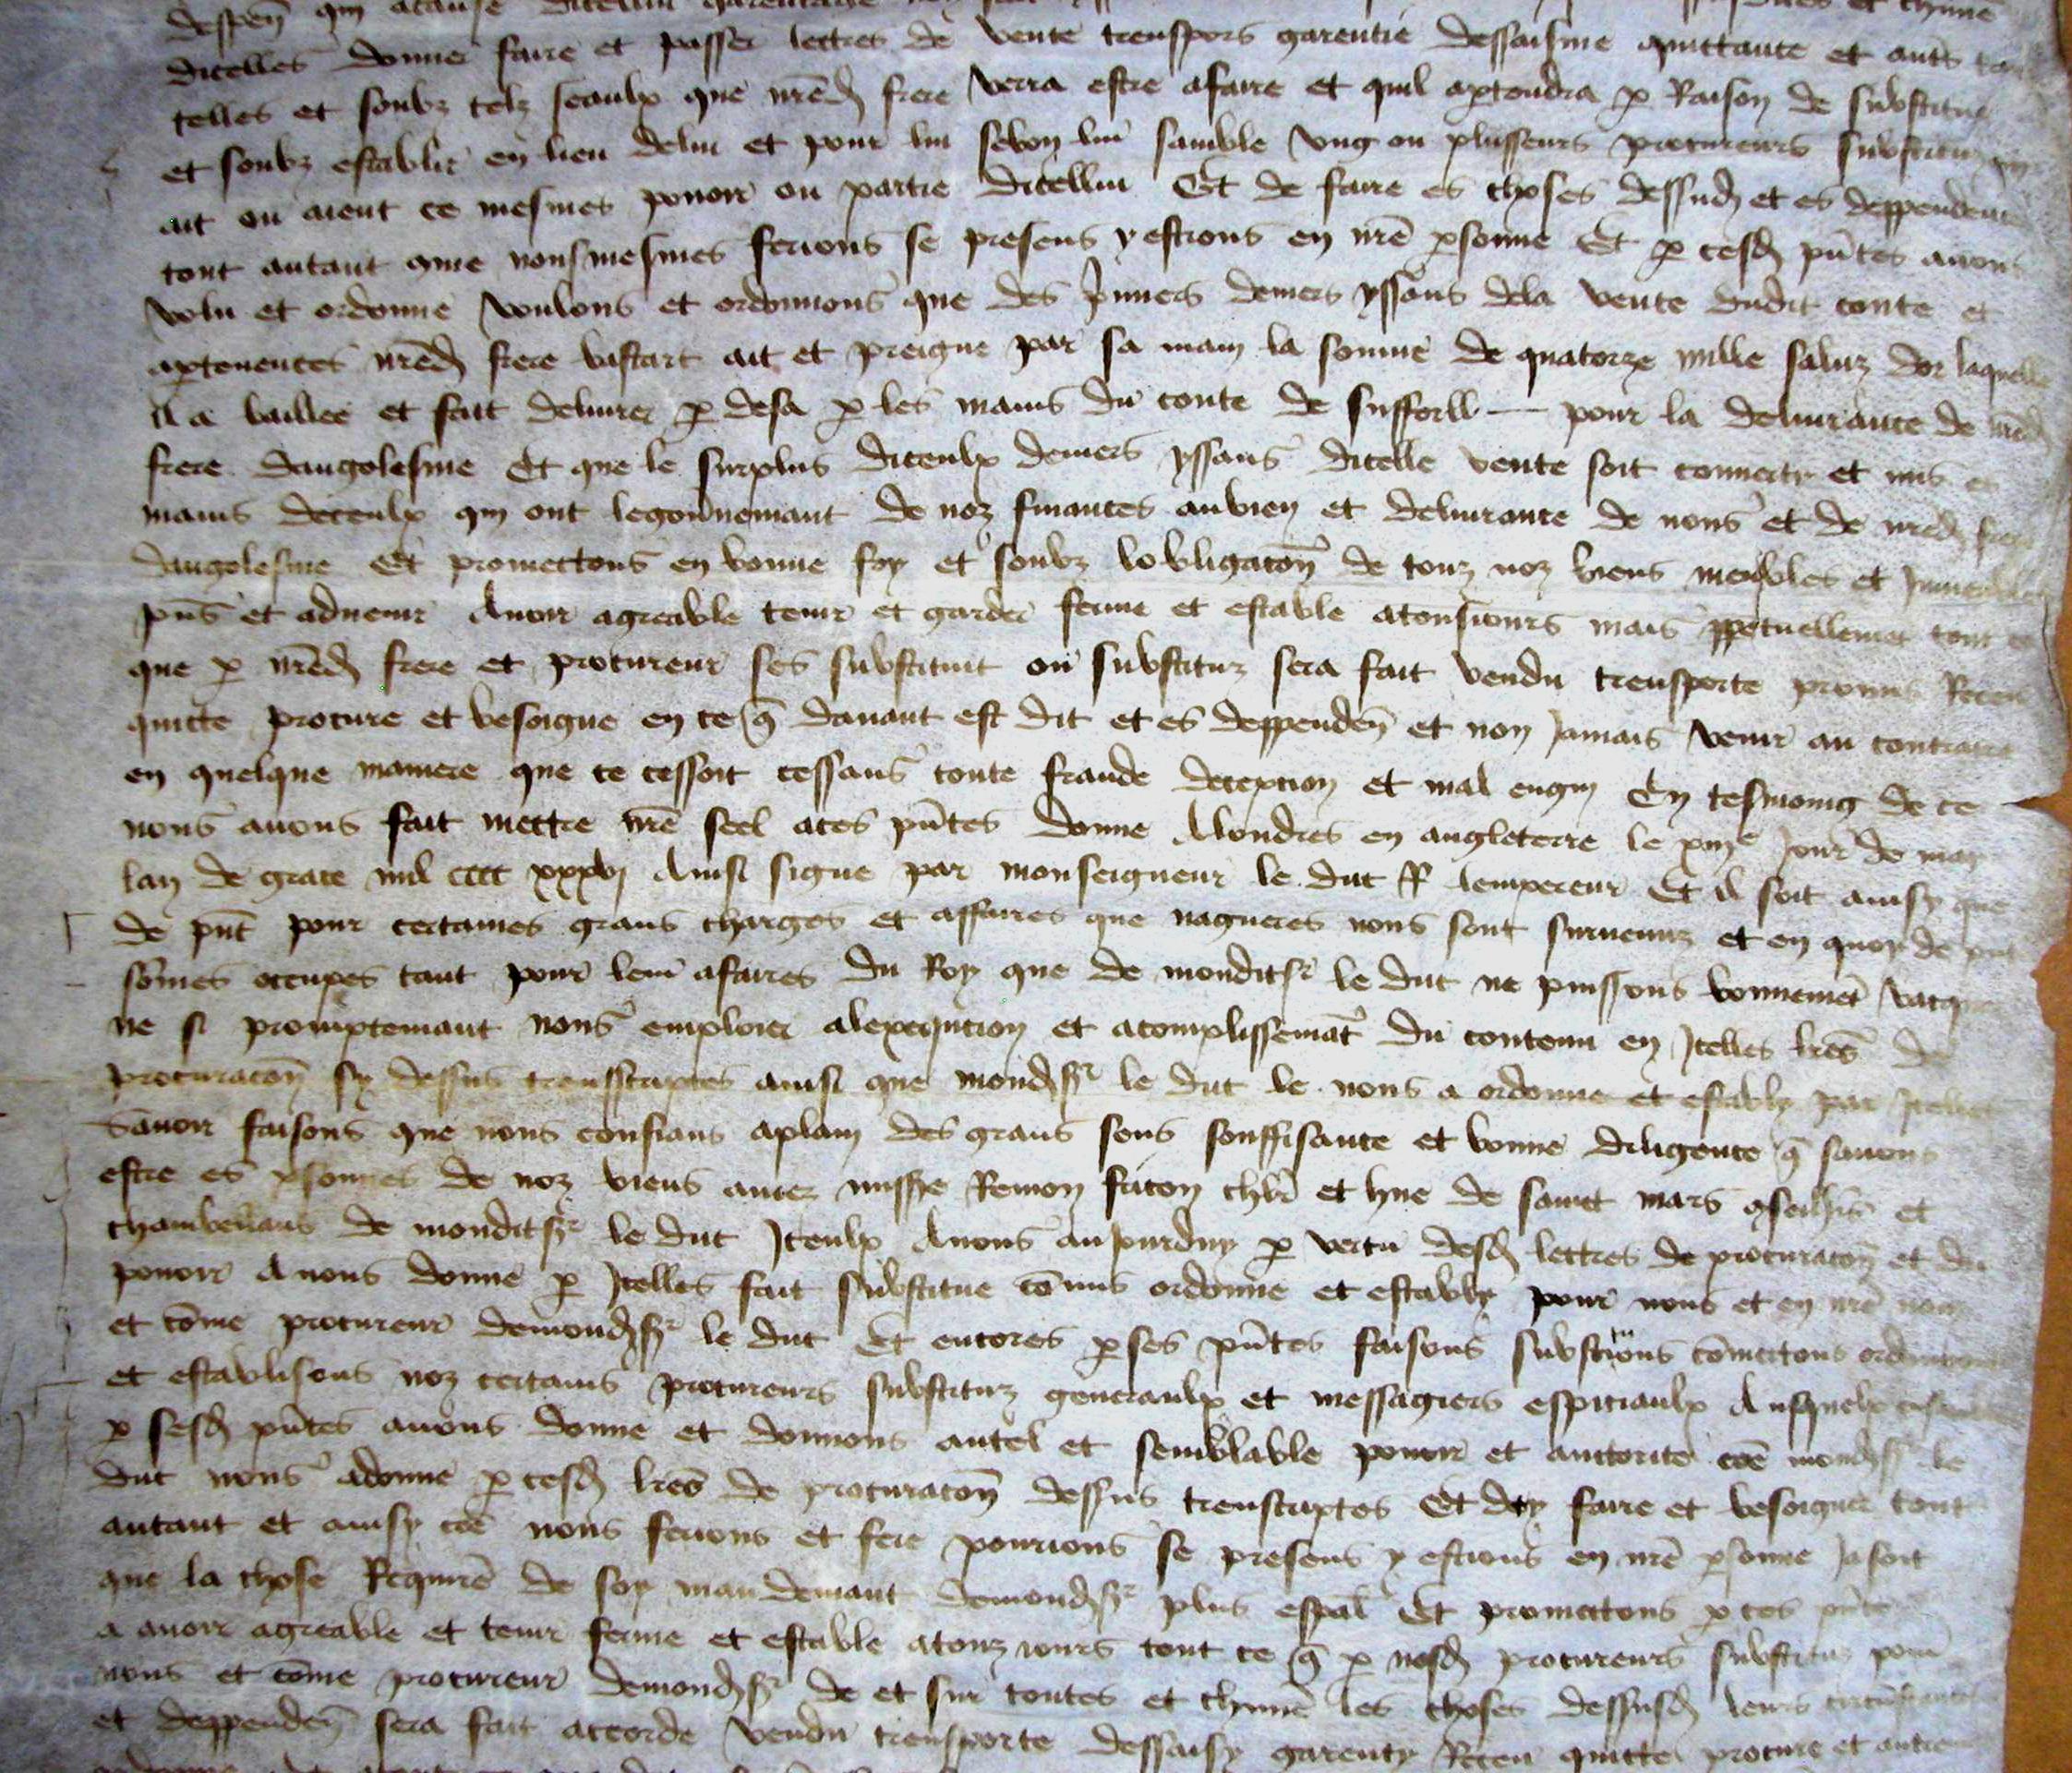 despen̄ qui acause dicellui garentage
dicelles donner faire et passer lettres de vente transpors garentie dessaisine quittance et autr̄s
telles et soubz telz seaulx que nr̄ed frere verra estre afaire et quil aptendra p Raison de substituer
et soubz establir en lieu delui et pour lui selon lui samble ung ou plusseurs procureurs substituz
ait ou aient ce mesmes pouoir ou partie dicellui Et de faire es choses dessusd et es deppendences
tout autant que nousmesmes ferions se presens y estions en nr̄e psonne Et p cesd pn̄tes auons
volu et ordonne voulons et ordonnons que des p̄miers deniers yssans dela vente dudit conte et
aptenences nr̄ed frere bastart ait et preigne par sa main la somme de quatorze mille saluz dor laquelle
il a baillee et fait deliurer p desa p les mains du conte de sufforll pour la deliurance de nr̄ed
frere dangolesme Et que le surplus diceulx deniers yssans dicelle vente soit conuerty et mis es
mains deceulx qui ont legouuernemant de noz finances aubien et deliurance de nous et de nr̄ed frere
dangolesme Et promectons en bonne foy et soubz lobligacōn de touz noz biens meubles et Inmeubles
pn̄s et aduenir Auoir agreable tenir et garder ferme et estable atousiours mais ppetuellemet tout ce
que p nr̄ed frere et procureur ses substituit ou substituz sera fait vendu transporte promis Receu
quicte procure et besoigne en ce q̄ dauant est dit et es deppenden̄ et non Jamais venir au contraire
en quelque maniere que ce cessoit cessans toute fraude decepcion et mal engin En tesmoing de ce
nous auons fait mettre nr̄e seel aces pn̄tes Donne Alondres en angleterre le jour de may
lan de grace mil cccc xxxvj Ainsi signe par monseigneur le duc lempereur Et il soit ainsy que
de pn̄t pour certaines grans charges et affaires que nagueres nous sont suruenuz et en quoy de pn̄t
som̄es occupes tant pour lem afaires du Roy que de monditsr le duc ne puissons bonnemēt vacquer
ne si promptemant nous emploier alexecucion et acomplissemāt du contenu en Jcelles lr̄es de
procuracōn sy dessus transscriptes ainsi que mondsr le duc le nous a ordonne et estably par Jcelles
Sauoir faisons que nous confians aplain des grans sens souffisance et bonne diligence q̄ sauons
estre es psonnes de noz biens amez missre Remon facon chlr̄ et hue de sainct mars conseilliers et
chambellans de monditsr le duc Jceulx Auons aujourduy p vertu desd lettres de procuracōn et du
pouoir Anous donne p Jcelles fait substitue cōmis ordonne et estably pour nous et en nr̄e nom
et cōme procureur demondsr le duc Et encores p ses pn̄tes faisons substituons cōmectons ordonnons
et establisons noz certains procureurs substituz generaulx et messagiers espiciaulx Ausquelx
p sesd pn̄tes auons donne et donnons autel et semblable pouoir et auctorite cōe mondsr le
duc nous adonne p cesd lr̄es de procuracōn dessus transcriptes Et doy faire et besoigner tout
autant et ainsy cōe nous ferions et fere pourrions se presens y estions en nr̄e psonne Ja soit
que la chose Requiere de soy mandemant demondsr plus espāl Et promectons p ces pn̄tes
a auoir agreable et tenir ferme et estable atouz iours tout ce q̄ p nosd procureurs substituz pour
nous et cōme procureur demondsr de et sur toutes et chūne les choses dessusd leurs circunstances
et deppenden̄ sera fait accorde vendu transporte dessaisy garenty Receu quicte procure et autre